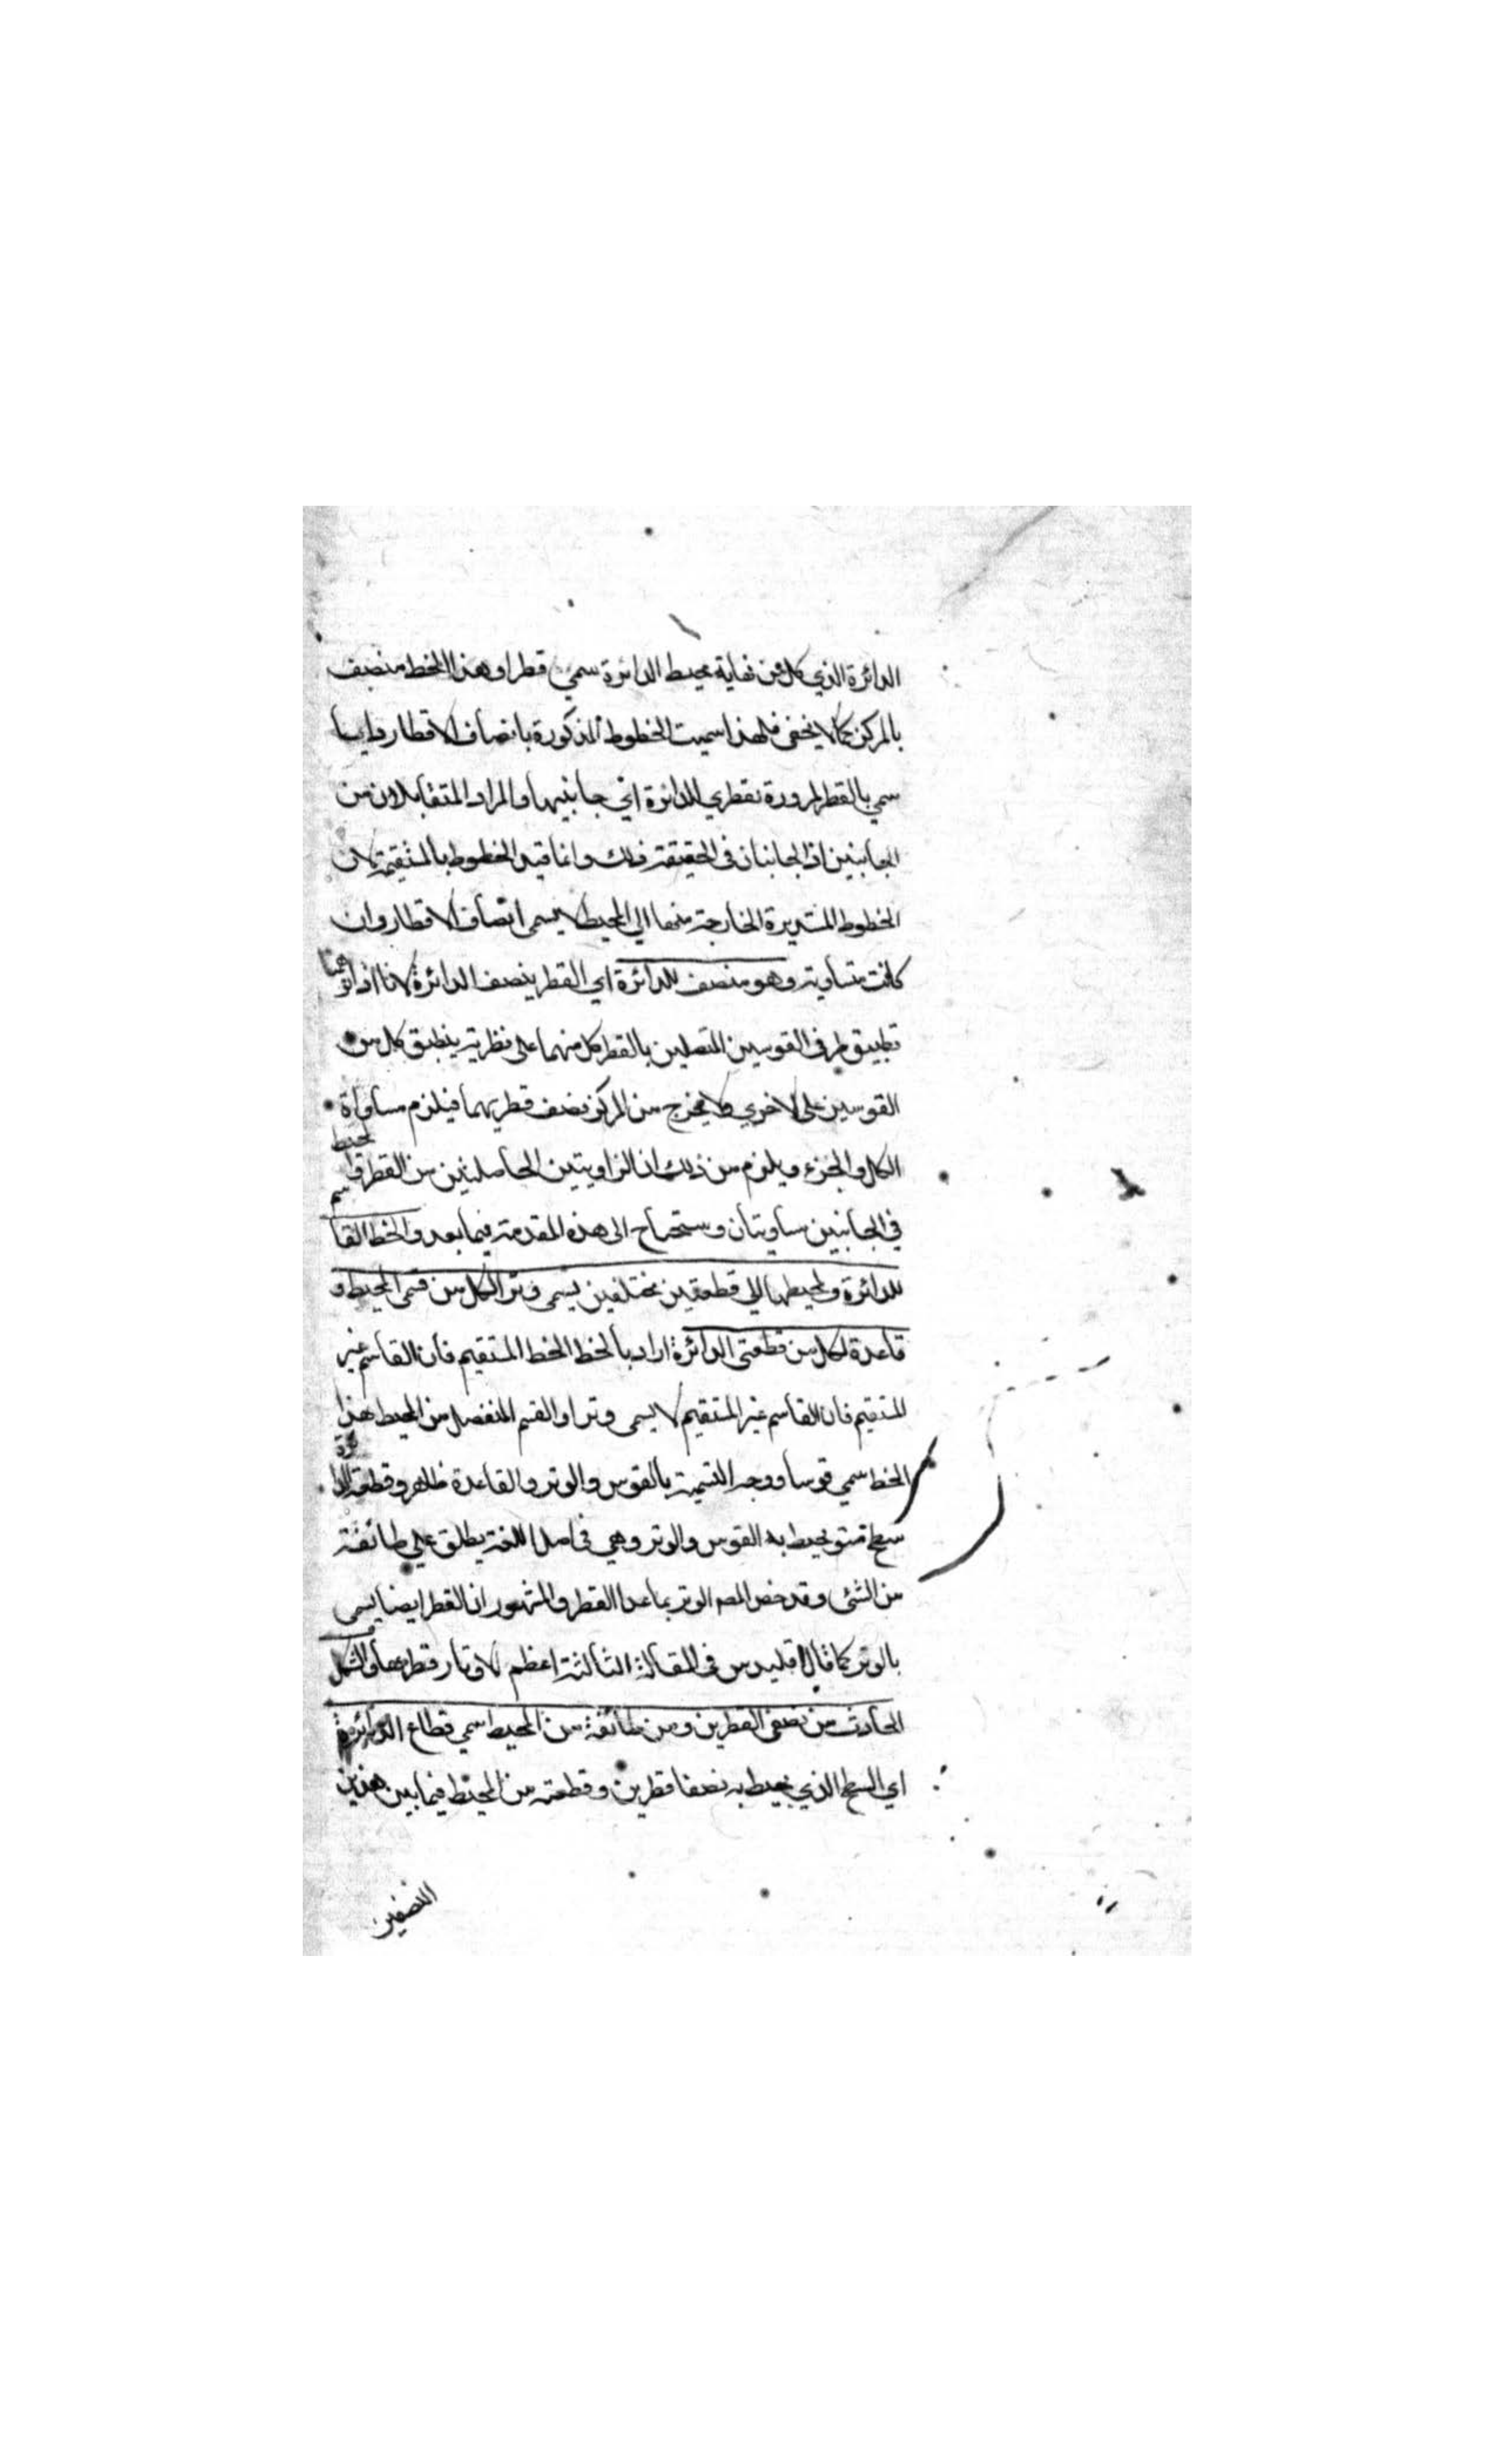 الدائرة الذي كل من نهاية محيط الدائرة سمي قطرا وهذا الخط منصف
بالمركز كما لا يخفى فلهذا سميت الخطوط المذكورة بانصاف الاقطار وايسا
سمي بالقطر لمروره بقطري للدائرة اي جانبيها والمراد المتقابلان من
الجانبين اذ الجانبان في الحقيقة ذلك وانما قيد الخطوط بالمستقيمة لان
الخطوط المستديرة الخارجة منها الي المحيط لا يسمى انصاف الاقطار وان
كانت متساوية وهو منصف للدائرة اي القطر ينصف الدائرة لانا اذا توهمنا
تطبيق طرفي القوسين المتصلين بالقطر كل منهما على نظريته ينطبق كل من
القوسين على الاخري ولا يخرج من المركز نصف قطريهما فيلزم مساواة
الكل والجزء ويلزم من ذلك ان الزاويتين الحاصلتين من القطر والمحيط
في الجانبين متساويتان وستحتاج الى هذه المقدمة فيما بعد والخط القاسم
للدائرة ولمحيطها الي قطعتين مختلفتين يسمى وترا لكل من قسمي المحيط و
قاعدة لكل من قطعتي الدائرة اراد بالخط الخط المستقيم فان القاسم غير
المستقيم فان القاسم غير المستقيم لا يسمى وترا والقسم المنفصل من المحيط بهذا
الخط سمي قوسا ووجه التسمية بالقوس والوتر والقاعدة ظاهر وقطعة الدائرة
سطح مستو يحيط به القوس والوتر وهي في اصل اللغة يطلق علي طائفة
من الشئ وقد خص المص الوتر بما عدا القطر والمشهور ان القطر ايضا يسمى
بالوتر كما قال اقليدس في المقالة الثالثة اعظم الاوتار قطرها والشكل
الحادث من نصفي القطرين ومن طائفة من المحيط سمي قطاع الدائرة
اي السطح الذي يحيط به نصفا قطرين وقطعة من المحيط فيما بين هذين
النصفين